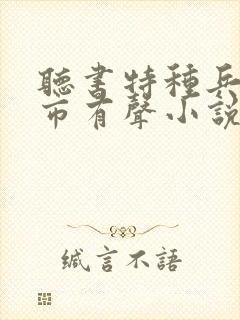 聽書特種兵
市有聲小說
緘言不語